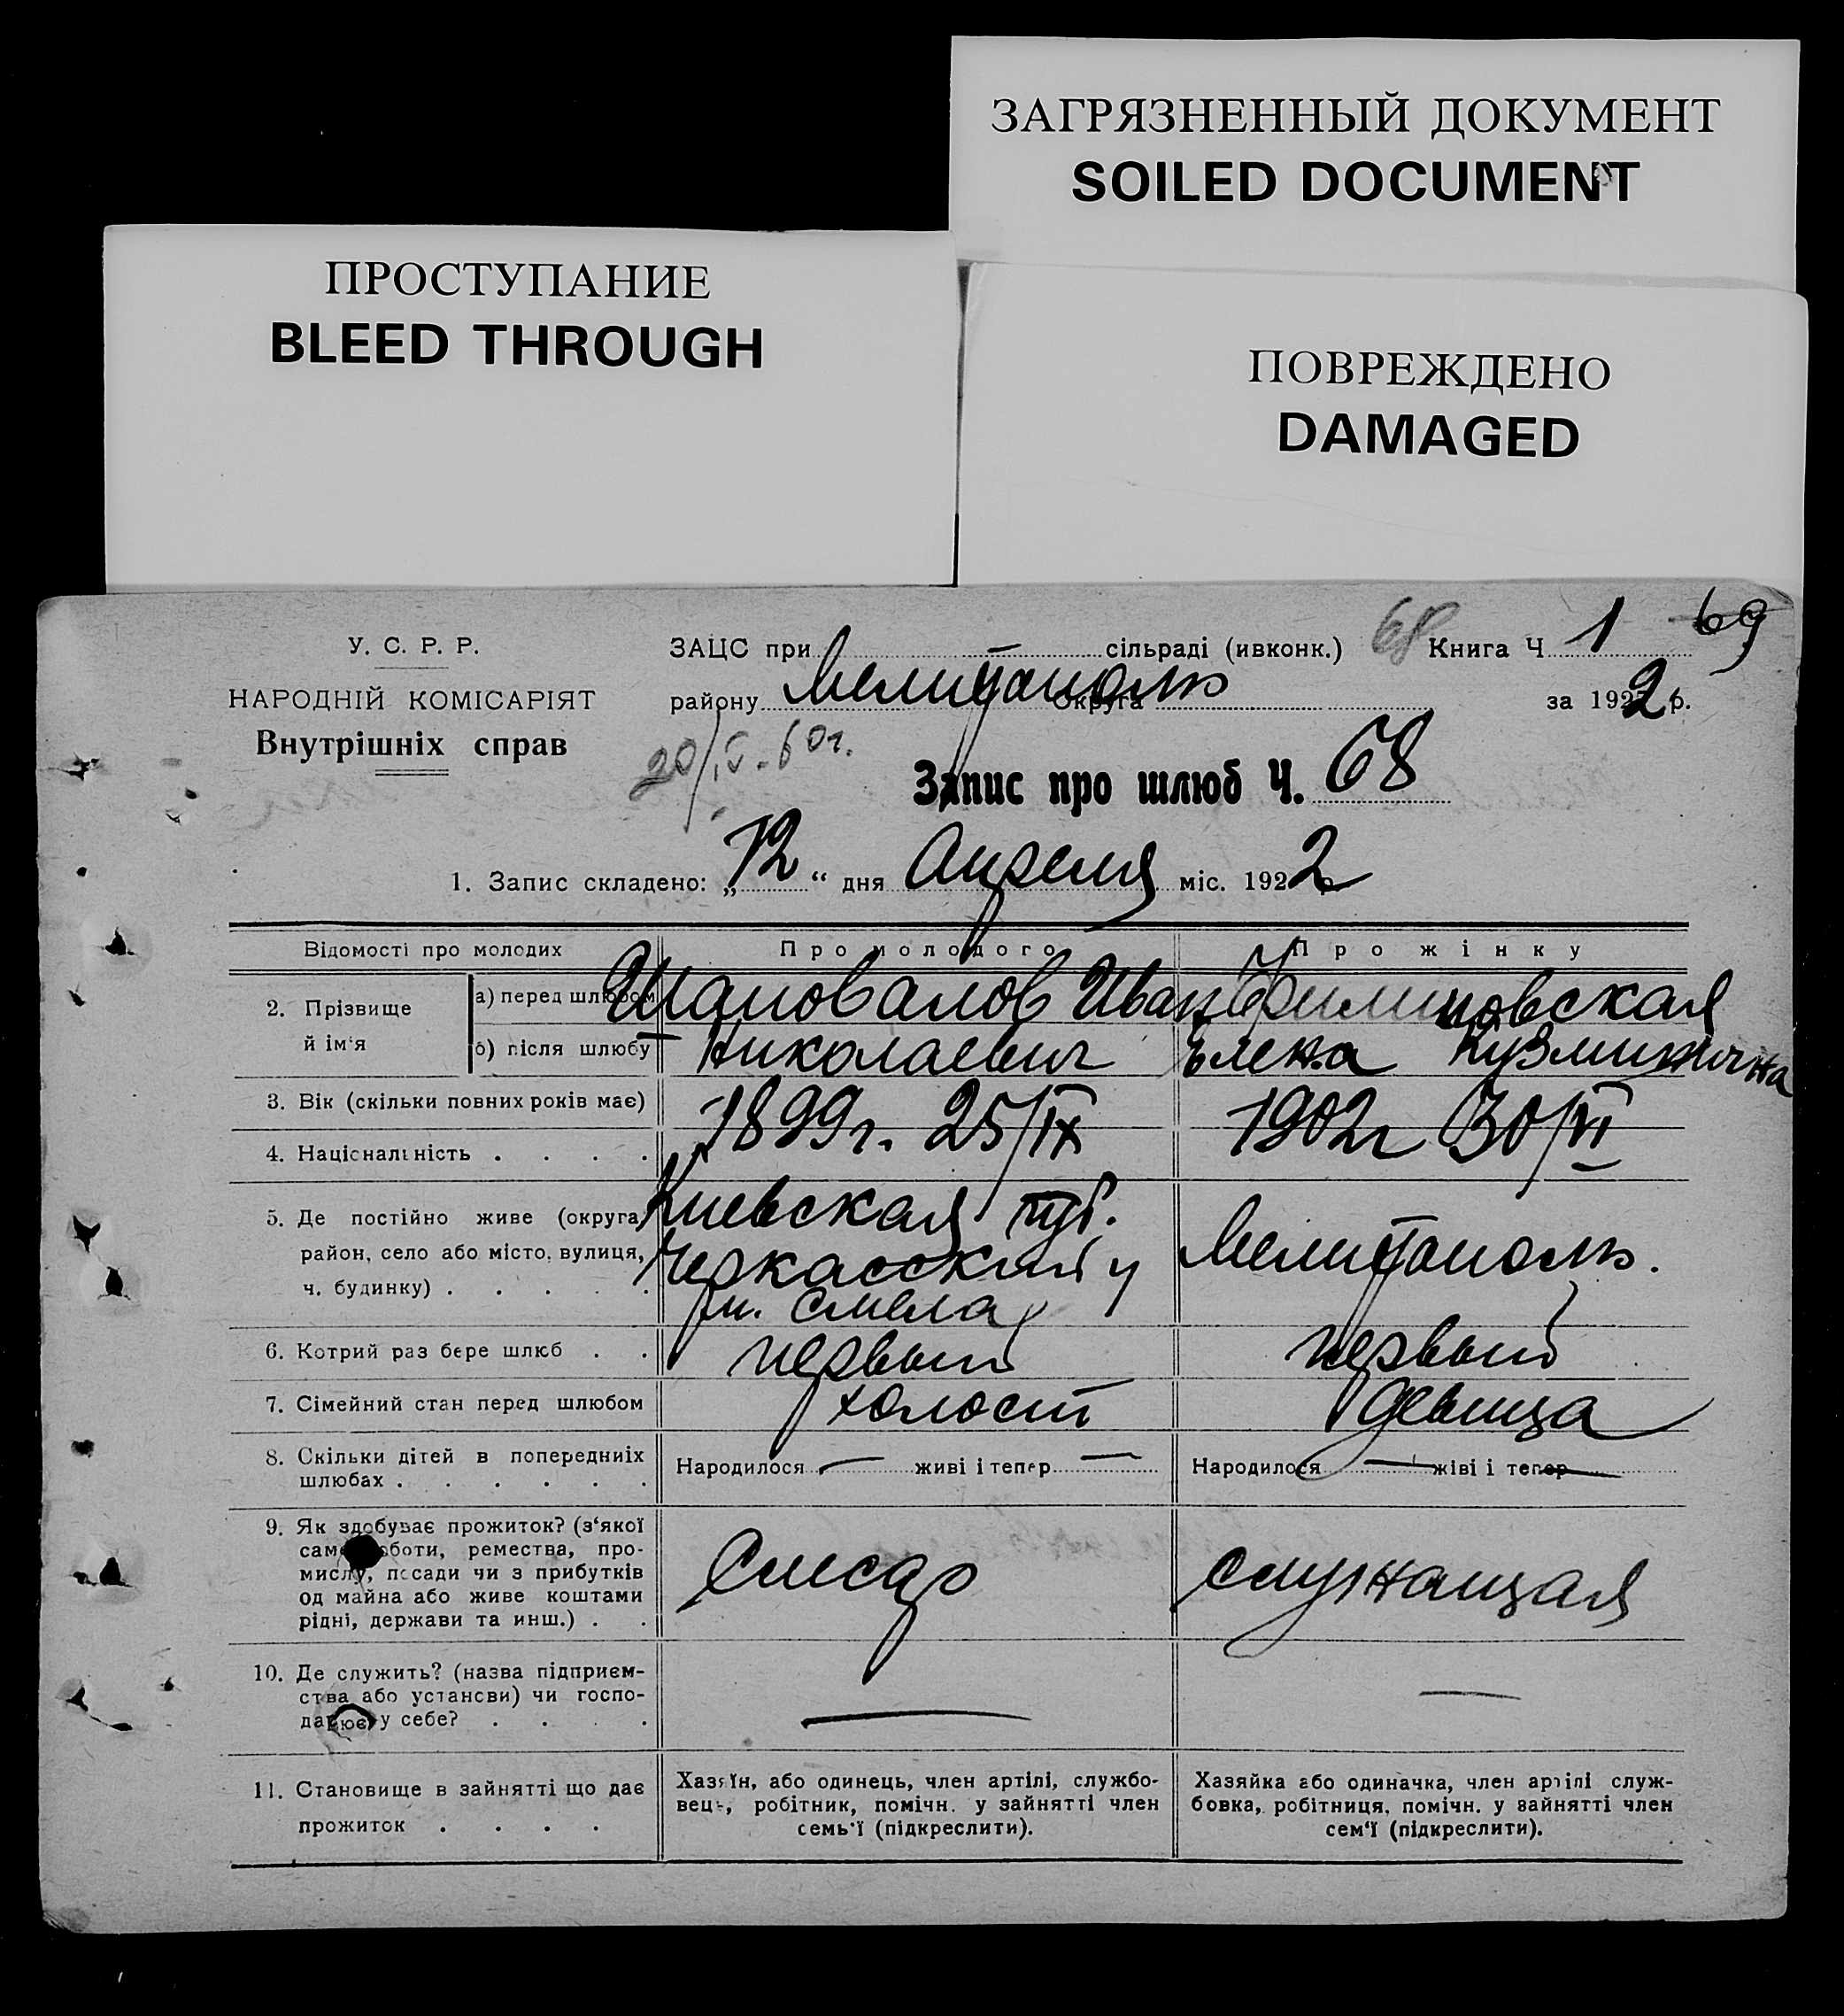 ЗАГРЯЗНЕННЫЙ ДОКУМЕНТ
SOILED DOCUMENT
ПРОСТУПАНИЕ
BLEED THROUGH
ПОВРЕЖДЕНО
DAMAGED
У. С. Р. Р.
НАРОДНІЙ КОМІСАРІЯТ
Внутрішніх справ
ЗАЦС при сільраді (ивконк.) 68 Книга Ч 1 69
району Мелитополь Округа за 1922 р.
20/IV-60г.
Запис про шлюб Ч. 68
1. Запис складено: „12“ дня Апреля міс. 1922 р
Відомості про молодих Про молодого Про жінку
2. Прізвище й ім'я
а) перед шлюбом Шаповалов Иван Филиповская
б) після шлюбу Николаевич Елена Кузминична
3. Вік (скільки повних років має) 1899г. 25/IX 1902г 30/VI
4. Національність . . . .
5. Де постійно живе (округа, Киевская губ.
район, село або місто, вулиця, Черкасский у Мелитополь.
ч. будинку) . . . . . м. Смела
6. Котрий раз бере шлюб . . первый первый
7. Сімейний стан перед шлюбом холост девица
8. Скільки дітей в попередніх Народилося — живі і тепер — Народилося — живі і тепер —
шлюбах . . . . . .
9. Як здобуває прожиток? (з‘якої
саме роботи, ремества, про-
мислу, посади чи з прибутків Слесар служащая
од майна або живе коштами
рідні, держави та инш.) . .
10. Де служить? (назва підприєм-
ства або установи) чи госпо- — —
дарює у себе? . . . .
11. Становище в зайнятті що дає
прожиток . . . .
Хазяїн, або одинець, член артілі, службо-
вець, робітник, помічн. у зайнятті член
семь'ї (підкреслити).
Хазяйка або одиначка, член артілі служ-
бовка, робітниця, помічн. у зайнятті член
сем‘ї (підкреслити).